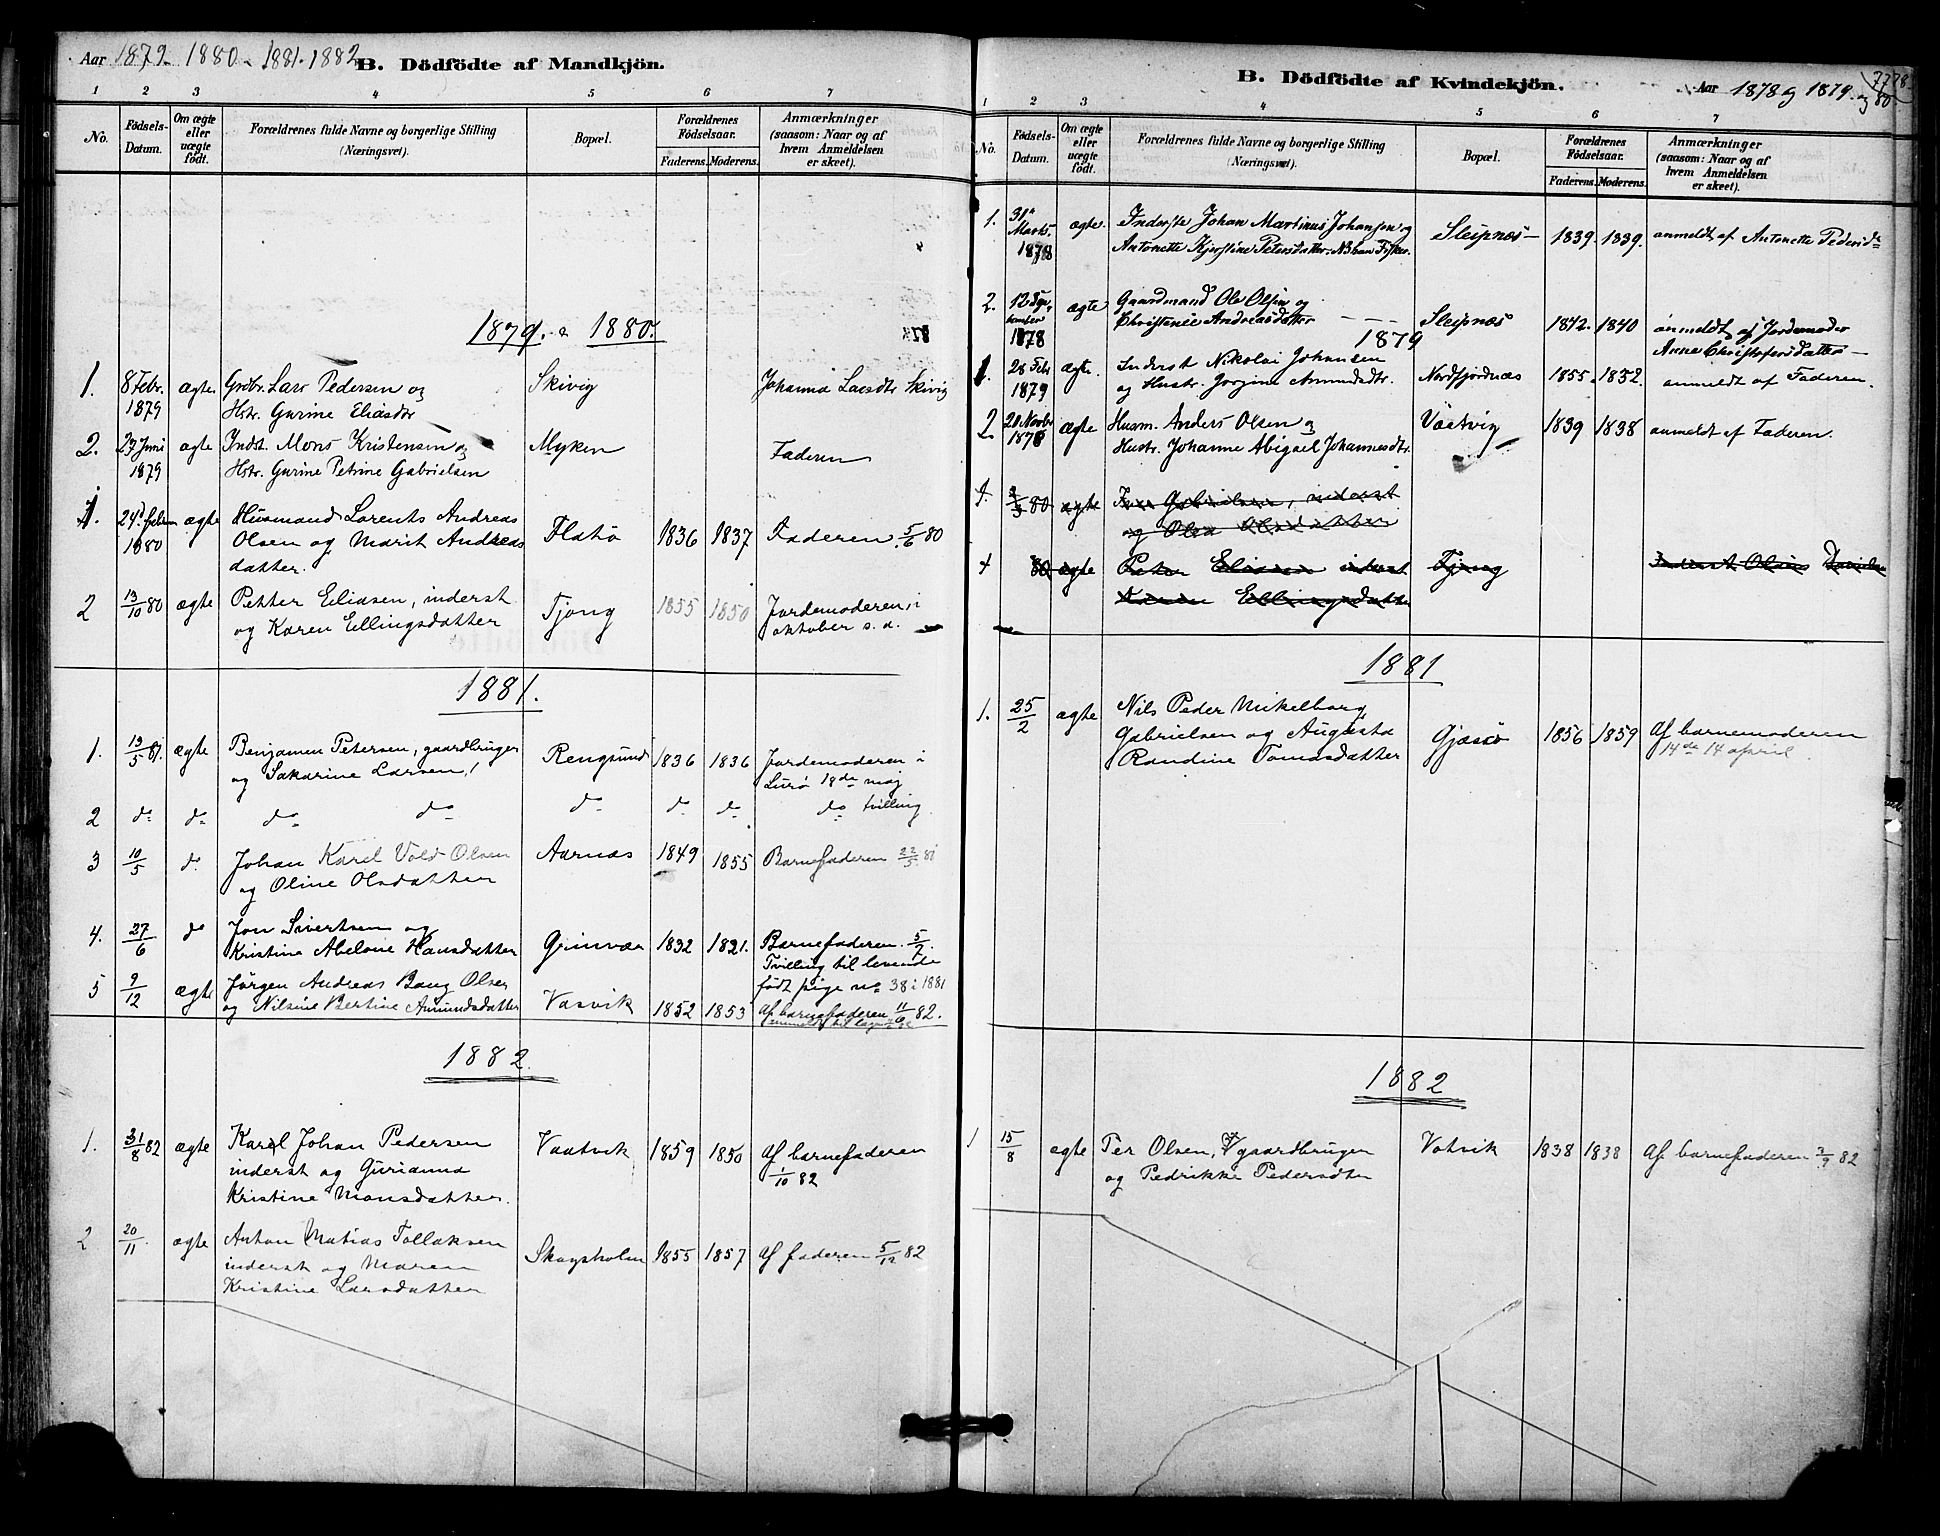 Aar 1879 - 1880 - 1881. 1882
B. Dödfödte af Mandkjön.
1 2 3 4 5 6 7
No. Födsels-Datum. Om ægte eller uægte födt. Forældrenes fulde Navne og borgerlige Stilling (Næringsvei). Bopæl. Forældrenes Födselsaar. Faderens. Moderens. Anmærkninger (saasom: Naar og af hvem Anmeldelsen er skeet).
1879. & 1880.
1. 8 Febr. ægte Grdbr. Lars Pedersen og Skivig Johanna Larsdt Skivig
1879 Hstr. Gurine Eliasdtr
2. 23 Juni ægte Indst. Mons Kristensen og Myken Faderen
1879 Hstr. Gurine Petrine Gabrielsen
1. 24d febru ægte Husmand Lorents Andreas
1880 Olsen og Marit Andreas Flatø 1836 1837 Faderen 5/6 80
datter.
2 13/10 80 ægte Petter Eliasen, inderst Tjong 1855 1850 Jordemoderen, i
og Karen Ellingsdatter oktober s. a.
1881.
1. 13/5 81. ægte Benjamin Petersen, gaardbruger Rengsund 1836 1836 Jordemoderen i
og Sakarine Larsen, Lurø 18de maj
2 do do do do do do do do tvilling
3 10/5 do Johan Karel Vold Olsen Aarnæs 1849 1855 Barnefaderen 22/5 81
og Oline Olsdatter
4. 27/6 do Jon Sivertsen og
Kristine Abelone Hansdatter Grinvær 1832 1821. Barnefaderen. 5/7.
Tvilling til levende
5 9/12 ægte Jørgen Andreas Bang Olsen født pige no 38 i 1881
og Nilsine Bertine Amundsdatter Vasvik 1852 1853 Af barnefaderen 11/6 82.
1882.
1. 31/8 82 ægte Karel Johan Pedersen Vaatvik 1859 1850 Af barnefaderen
inderst og Gurianna 1/10 82
Kristine Monsdatter.
2 20/11. ægte Anton Matias Tollaksen Skogsholm 1855 1857 Af faderen 5/12 82
inderst og Maren
Kristine Larsdatter
B. Dödfödte af Kvindekjön.
Aar 1878 og 1879. og 80
1 2 3 4 5 6 7
No. Födsels-Datum. Om ægte eller uægte födt. Forældrenes fulde Navne og borgerlige Stilling (Næringsvei). Bopæl. Forældrenes Födselsaar. Faderens. Moderens. Anmærkninger (saasom: Naar og af hvem Anmeldelsen er skeet).
1. 31te Marts ægte Inderste Johan Martinus Johansen og Sleipnæs - 1839 1839. anmeldt af Antonette Pedersdtr
1878 Antonette Kjerstine Petersdatter. NB han Fisker.
2. 12 September ægte Gaardmand Ole Olsen og
1878 Christense Andreasdatter Sleipnæs 1842. 1840 anmeldt af Jordemoder
Anne Christofersdatter -
1879
1. 28 Feb ægte. Inderst Nikolai Johansen
1879 og Hustr. Jorgine Amundsdtr. Nordfjordnæs 1855. 1852. anmeldt af Faderen.
2. 20 Novbr ægte Husm. Anders Olsen og Vaatvig 1839 1838 anmeldt af Faderen.
1878 Hustr. Johanne Abigael Johannesdtr.
1. 80 ægte Gabrielsen, inderst
og Olea Olsdatter
80 ægte Peter Eliasen inderst Tjong Inderst
Karen Ellingsdatter
1881
1. 25/2 ægte Nils Peder Mikelborg
Gabrielsen og Augusta Gjæsø 1856 1859 Af barnemoderen
Randine Tomasdatter 14de 14 april.
1882
1 15/8 ægte Per Olsen, gaardbruger Votvik 1838 1838 Af barnefaderen 3/9 82
og Pedrikke Pedersdtr